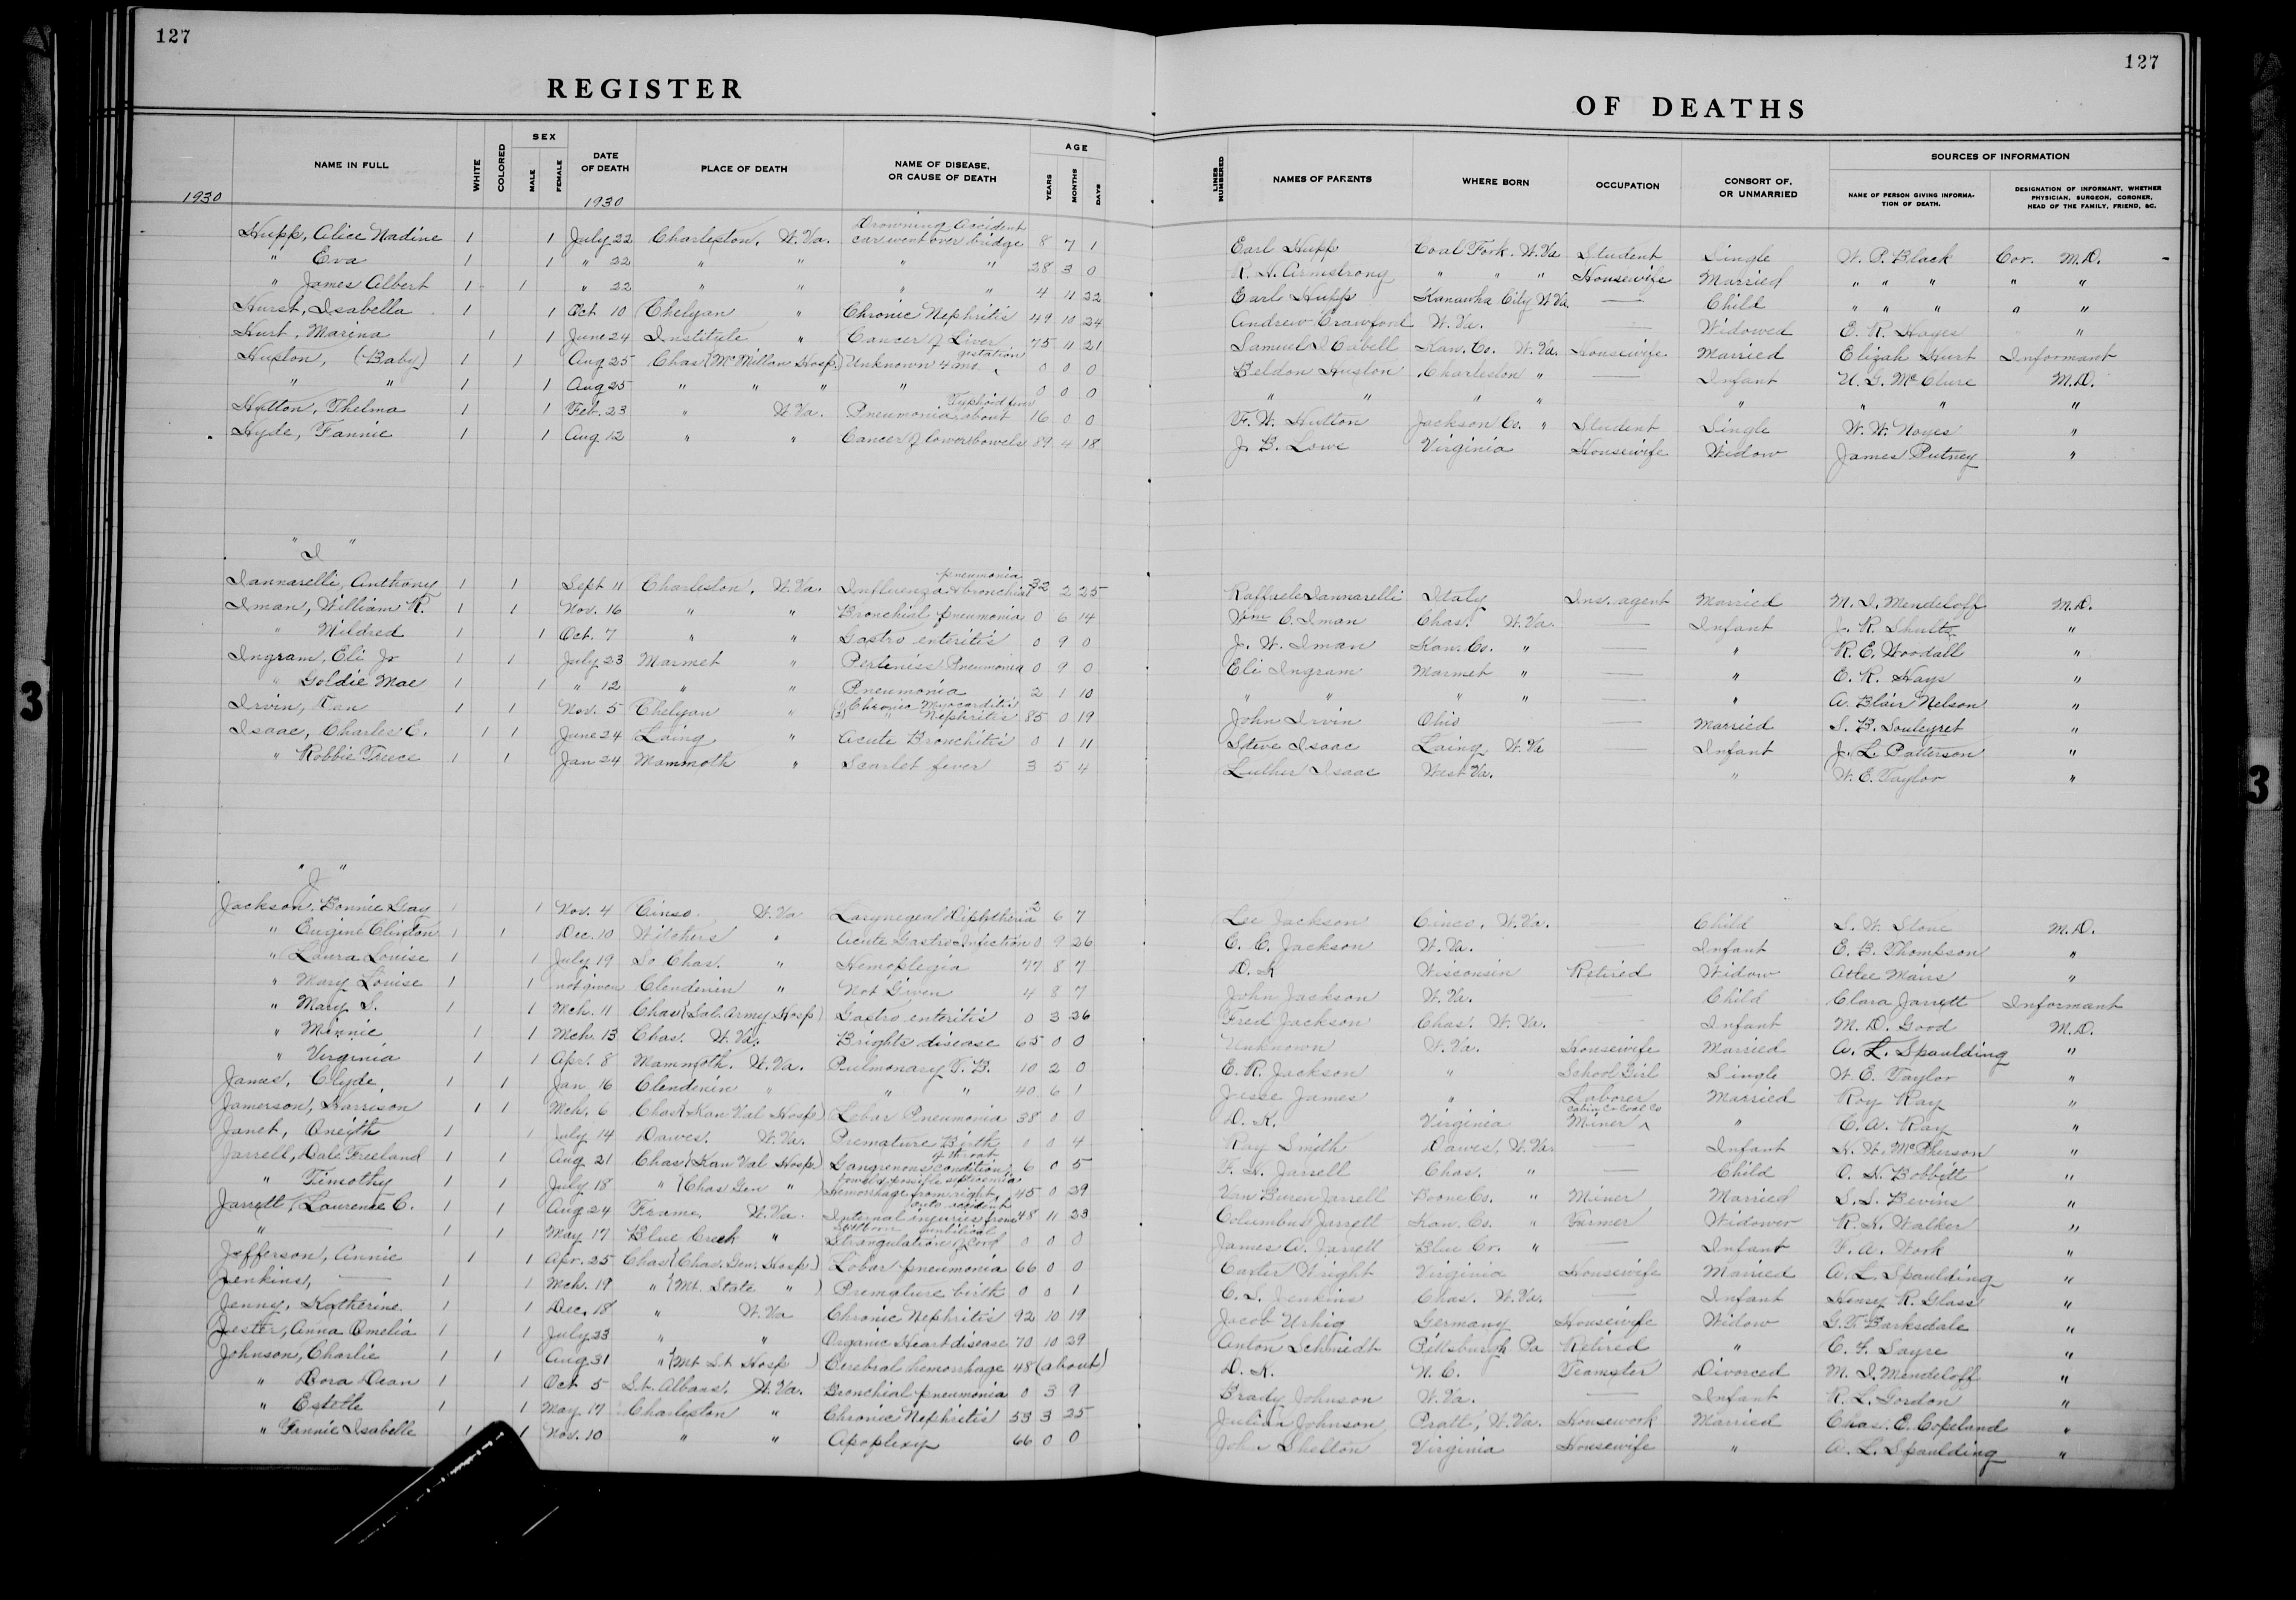 127
127
REGISTER
OF DEATHS
NAME IN FULL WHITE COLORED SEX MALE FEMALE DATE OF DEATH PLACE OF DEATH NAME OF DISEASE, OR CAUSE OF DEATH AGE YEARS MONTHS DAYS LINES NUMBERED NAMES OF PARENTS WHERE BORN OCCUPATION CONSORT OF, OR UNMARRIED SOURCES OF INFORMATION NAME OF PERSON GIVING INFORMATION OF DEATH. DESIGNATION OF INFORMANT, WHETHER PHYSICIAN, SURGEON, CORONER, HEAD OF THE FAMILY, FRIEND, &C.
1930 1930
Hupp, Alice Nadine 1 1 July 22 Charleston, W.Va. Drowning Accident car went over bridge 8 7 1 Earl Hupp Coal Fork. W.Va Student Single W. P. Black Cor. M.D.
" Eva 1 1 " 22 " " " " 28 3 0 R. H. Armstrong " " " Housewife Married " " " " "
" James Albert 1 1 " 22 " " " " 4 11 22 Earl Hupp Kanawha City W.Va. — Child " " " " "
Hurst, Isabella 1 1 Oct. 10 Chelyan " Chronic Nephritis 49 10 24 Andrew Crawford W. Va. — Widowed E. R. Hayes "
Hurt, Marina 1 1 June 24 Institute " Cancer of Liver 75 11 21 Samuel I Cabell Kan. Co. W. Va. Housewife Married Elizah Hurt Informant
Huston, (Baby) 1 1 Aug 25 Chas (McMillan Hosp.) Unknown 4 mo. gestation 0 0 0 Beldon Huston Charleston " — Infant U. G. McClure M.D.
" " 1 1 Aug 25 " " " " 0 0 0 " " " " " " " "
Hutton, Thelma 1 1 Feb. 23 " W.Va. Pneumonia Typhoid fever about 16 0 0 F. W. Hutton Jackson Co. " Student Single W. W. Noyes "
Hyde, Fannie 1 1 Aug. 12 " " Cancer of lower bowels 89 4 18 J. B. Lowe Virginia Housewife Widow James Putney "
" I "
Iannarelli, Anthony 1 1 Sept 11 Charleston, W.Va. Influenza & bronchial pneumonia 32 2 25 Raffaele Iannarelli Italy Ins. agent Married M. I. Mendeloff M.D.
Iman, William R. 1 1 Nov. 16 " " Bronchial pneumonia 0 6 14 Wm C. Iman Chas. W.Va. — Infant J. R. Shultz "
" Mildred 1 1 Oct. 7 " " Gastro enteritis 0 9 0 J. W. Iman Kan. Co. " — " R. E. Woodall "
Ingram, Eli Jr 1 1 July 23 Marmet " Pneumonia 0 9 0 Eli Ingram Marmet " — " E. R. Hays "
" Goldie Mae 1 1 " 12 " " Pneumonia 2 1 10 " " " " — " A. Blair Nelson "
Irvin, Van 1 1 Nov. 5 Chelyan " (1) Chronic Myocarditis (2) " Nephritis 85 0 19 John Irvin Ohio — Married "
Isaac, Charles E. 1 1 June 24 Laing " Acute Bronchitis 0 1 11 Steve Isaac Laing. W. Va — Infant J. L. Patterson "
" Robbie Treece 1 1 Jan 24 Mammoth " Scarlet fever 3 5 4 Luther Isaac West Va. " W. E. Taylor "
" J "
Jackson, Bonnie Gay 1 1 Nov. 4 Cinso. W.Va Laryngeal Diphtheria 2 6 7 Lee Jackson Cinco, W.Va. Child S. W. Stone M.D.
" Eugine Clinton 1 1 Dec. 10 Witchers " Acute Gastro Infection 0 9 26 C. C. Jackson W. Va. — Infant E. B. Thompson "
" Laura Louise 1 1 July 19 So Chas. " Hemoplegia 77 8 7 D. K Wisconsin Retired Widow Atlee Mairs "
" Mary Louise 1 1 not given Clendenin " Not Given 4 8 7 John Jackson W. Va. — Child Clara Jarrett Informant
" Mary S. 1 1 Mch. 11 Chas (Sal. Army Hosp) Gastro enteritis 0 3 26 Fred Jackson Chas. W. Va. — Infant M. D. Good M.D.
" Minnie 1 1 Mch. 13 Chas. W. Va. Brights disease 65 0 0 Unknown W. Va. Housewife Married A. L. Spaulding "
" Virginia 1 1 Apr. 8 Mammoth. W.Va. Pulmonary T. B. 10 2 0 E. R. Jackson " School Girl Single W. E. Taylor "
James, Clyde, 1 1 Jan 16 Clendenin " " " 40 6 1 Jesse James " Laborer Married Roy Ray "
Jamerson, Harrison 1 1 Mch. 6 Chas (Kan Val Hosp) Lobar Pneumonia 38 0 0 D. K. Virginia Cabin Cr Coal Co Miner " C. A. Ray "
Janet, Oneith 1 1 July 14 Dawes. W. Va. Premature Birth 1 0 4 Ray Smith Dawes, W. Va. — Infant H. W. McPherson "
Jarrell, Dale Freeland 1 1 Aug 21 Chas (Kan Val Hosp) Gangrenous condition of throat 6 0 5 Jarrell Chas. " — Child O. H. Bobbitt "
" Timothy 1 1 July 18 " (Chas Gen ") Hemorrhage from right bowel & possible septicemia 45 0 29 Van Buren Jarrell Boone Co. " Miner Married S. S. Bevins "
Jarrett, Laurence C. 1 1 Aug 24 Frame. W. Va. Internal injuries from auto accident 48 11 23 Columbus Jarrett Kan. Co. " Farmer Widower R. H. Walker "
" — 1 1 May 17 Blue Creek " Stillborn Strangulation of umbilical cord 0 0 0 James A. Jarrett Blue Cr. " — Infant F. A. Work "
Jefferson, Annie 1 1 Apr. 25 Chas (Chas. Gen. Hosp) Lobar pneumonia 66 0 0 Carter Wright Virginia Housewife Married A. L. Spaulding "
Jenkins, — 1 1 Mch. 19 " (Mt. State ") Premature birth 0 0 1 C. S. Jenkins Chas. W. Va. — Infant Henry R. Glass "
Jenny, Katherine 1 1 Dec. 18 " W. Va Chronic Nephritis 92 10 19 Jacob Uhrig Germany Housewife Widow G. V. Barksdale "
Jester, Anna Amelia 1 1 July 23 " " Organic Heart disease 70 10 29 Anton Schmidt Pittsburgh Pa Retired " C. F. Sayre "
Johnson, Charlie 1 1 Aug 31 " (Mt. St. Hosp) Cerebral hemorrhage 48 (about) D. K. N. C. Teamster Divorced M. I. Mendeloff "
" Dora Dean 1 1 Oct 5 St. Albans. W. Va. Bronchial pneumonia 0 3 9 Brady Johnson W. Va. — Infant R. L. Gordon "
" Estelle 1 1 May 17 Charleston " Chronic Nephritis 53 3 25 Julian Johnson Pratt, W. Va. Housework Married Chas. E. Copeland "
" Fannie Isabelle 1 1 Nov. 10 " " Apoplexy 66 0 0 John Shelton Virginia Housewife " A. L. Spaulding "
3
3